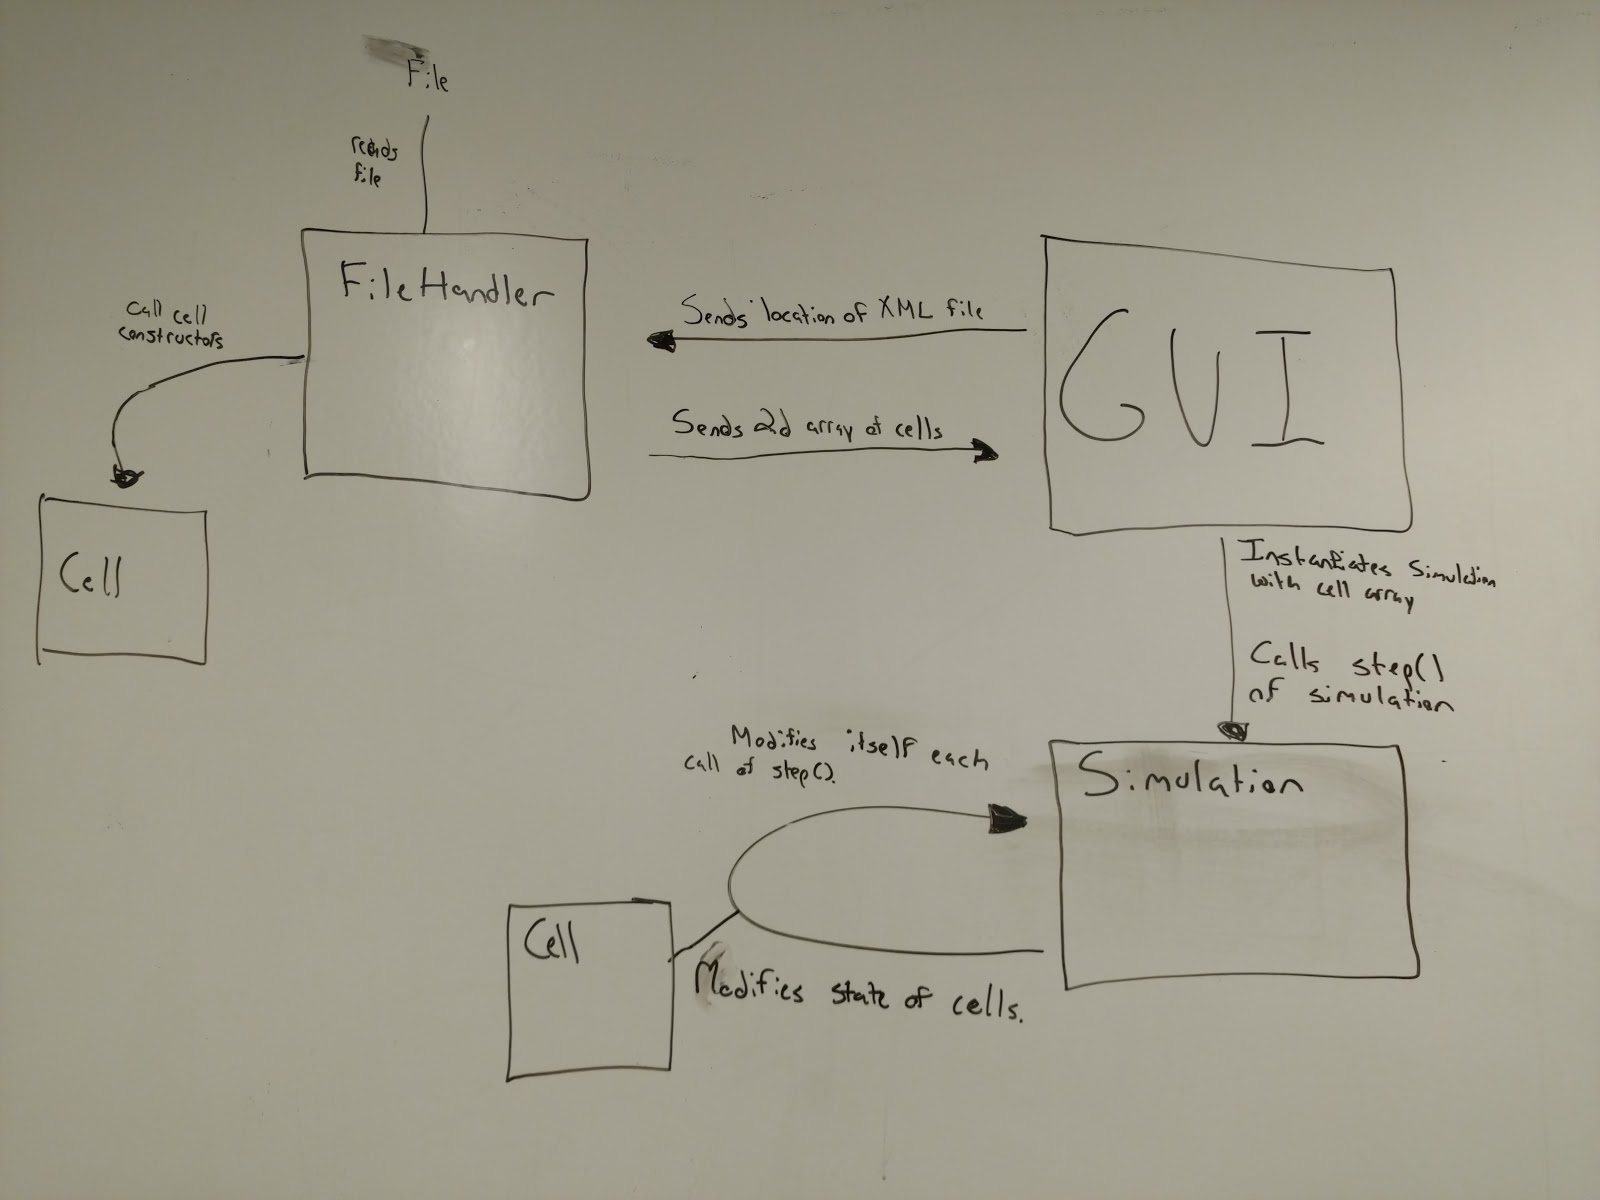 File
reads
file
FileHandler
Call cell
constructors
Sends location of XML file
Sends 2d array of cells
GUI
Cell
Instantiates Simulation
with cell array
Calls step()
of simulation
Modifies itself each
call of step().
Simulation
Cell
Modifies state of cells.